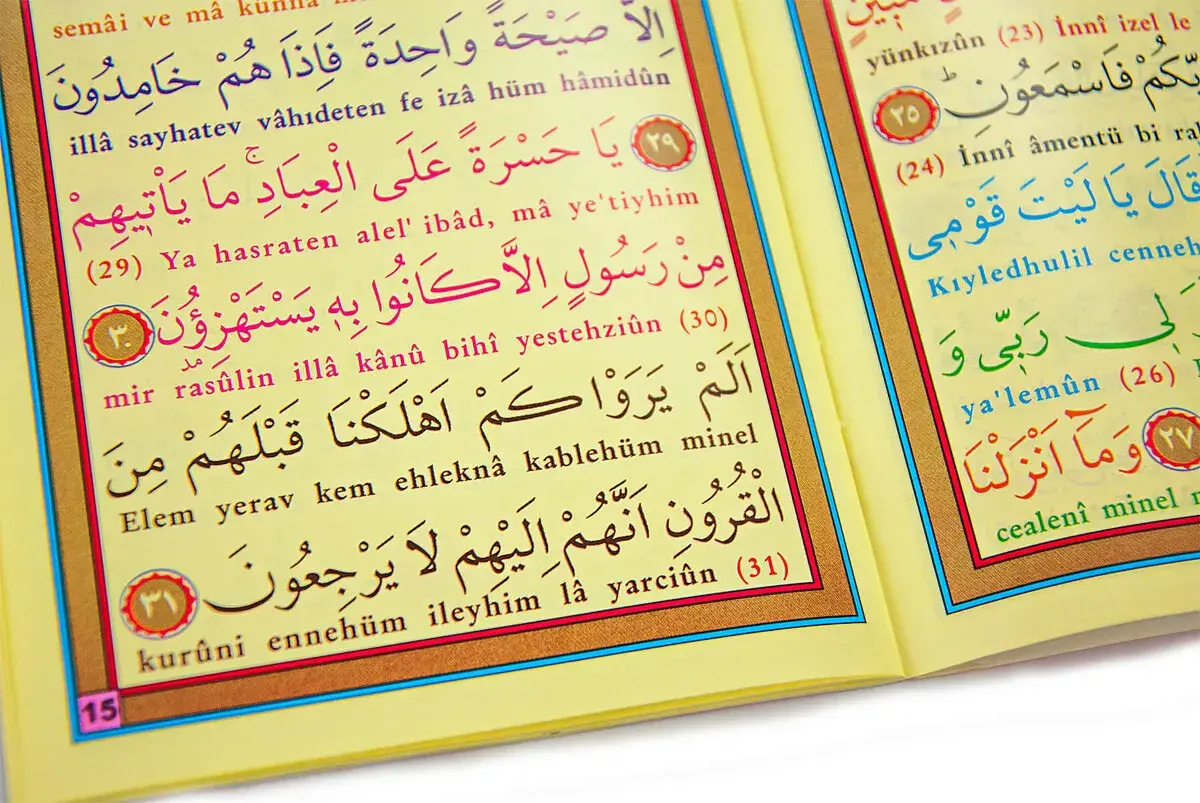 مُبٖينٍ
yünkızûn (23) İnnî izel le
فَاسْمَعُونِ ﴿٢٥﴾
(24) İnnî âmentü bi
قَالَ يَا لَيْتَ قَوْمٖى
Kıyledhulil
لٖى رَبّٖى وَ
ya'lemûn (26)
﴿٢٧﴾ وَمَٓا اَنْزَلْنَا
cealenî minel
semâi ve mâ künnâ
اِلَّا صَيْحَةً وَاحِدَةً فَاِذَا هُمْ خَامِدُونَ
illâ sayhatev vâhıdeten fe izâ hüm hâmidûn
﴿٢٩﴾ يَا حَسْرَةً عَلَى الْعِبَادِۚ مَا يَاْتٖيهِمْ
(29) Ya hasraten alel' ibâd, mâ ye'tiyhim
مِنْ رَسُولٍ اِلَّا كَانُوا بِهٖ يَسْتَهْزِؤُنَ ﴿٣٠﴾
mir rasûlin illâ kânû bihî yestehziûn (30)
اَلَمْ يَرَوْا كَمْ اَهْلَكْنَا قَبْلَهُمْ مِنَ
Elem yerav kem ehleknâ kablehüm minel
الْقُرُونِ اَنَّهُمْ اِلَيْهِمْ لَا يَرْجِعُونَ ﴿٣١﴾
kurûni ennehüm ileyhim lâ yarciûn (31)
15